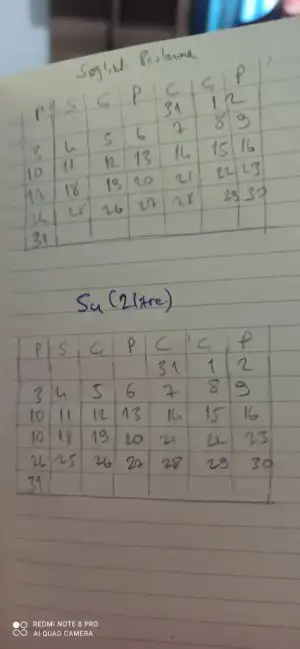 Sağlıklı Beslenme
P S Ç P C C P
31 1 2
3 4 5 6 7 8 9
10 11 12 13 14 15 16
17 18 19 20 21 22 23
24 25 26 27 28 29 30
31
Su (2 litre)
P S Ç P C C P
31 1 2
3 4 5 6 7 8 9
10 11 12 13 14 15 16
18 19 20 21 22 23
24 25 26 27 28 29 30
31
REDMI NOTE 8 PRO
AI QUAD CAMERA